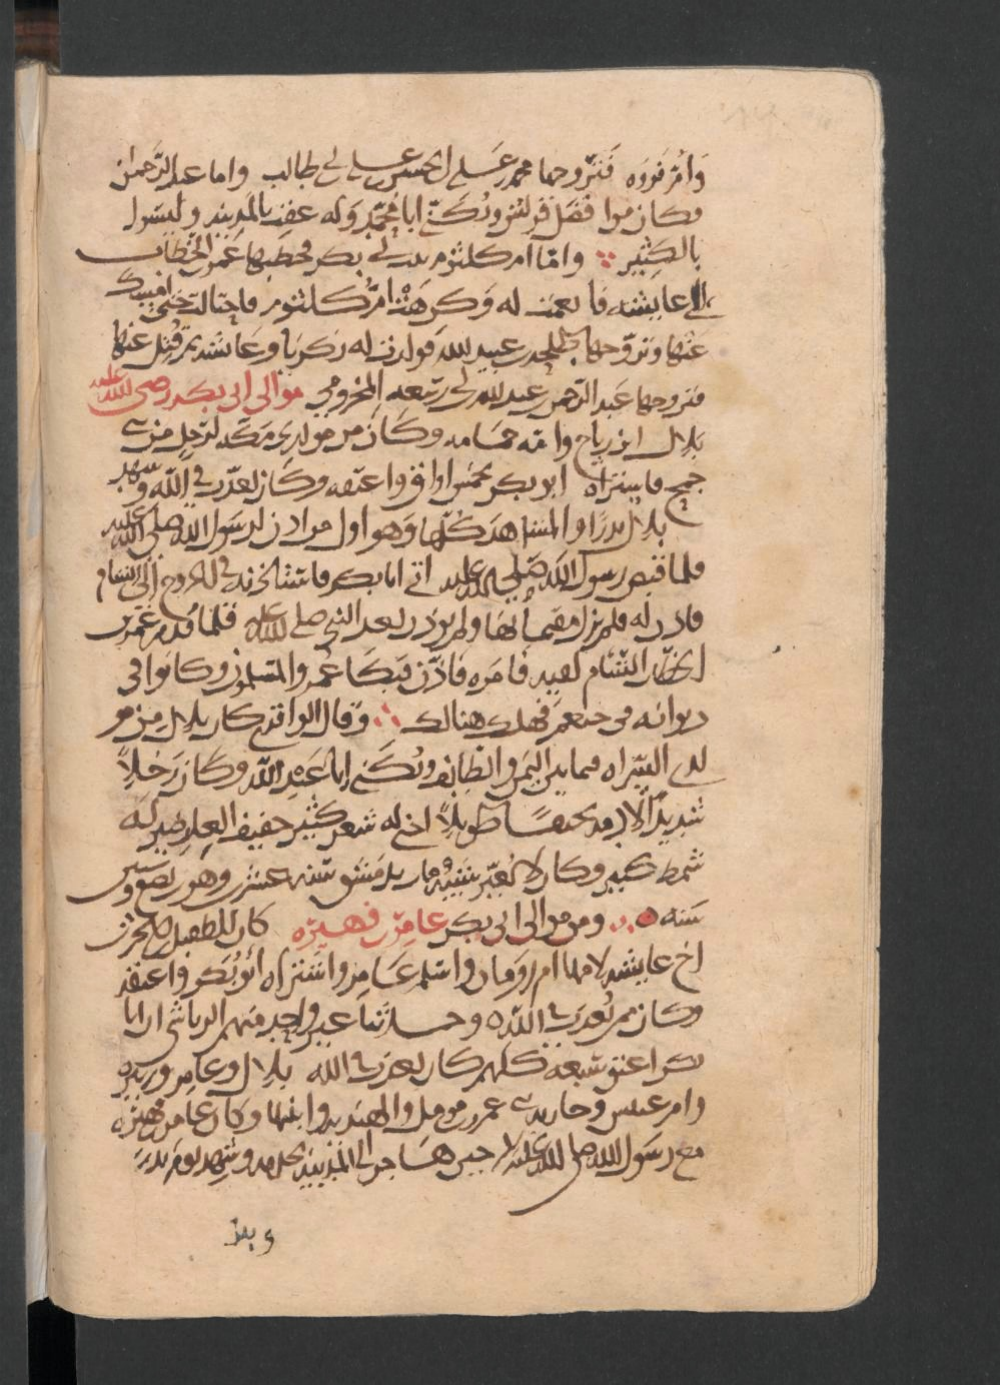 وأم فروه فتزوجها محمد بن علي بن الحسين بن علي بن ابي طالب واما عبد الرحمن
وكان من افضل قريش ويكنى ابا محمد وله عقب بالمدينه وليسوا
بالكثير واما ام كلثوم بنت ابي بكر فخطبها عمر بن الخطاب
الى عايشه فانعمت له وكرهته ام كلثوم فاحتالت حتى امسك
عنها وتزوجها طلحه بن عبيد الله فولدت له زكريا وعايشه ثم قتل عنها
فتزوجها عبد الرحمن بن عبد الله بن ابي ربيعه المخزومي موالي ابي بكر رضي الله عنه
بلال ابن رباح وامه حمامه وكان من مولدي مكه لرجل من بني
جمح فاشتراه ابو بكر بخمس اواق واعتقه وكان يعذب في الله وشهد
بلال بدرا والمشاهد كلها وهو اول من اذن لرسول الله صلى الله عليه
فلما قبض رسول الله صلى الله عليه اتى ابا بكر فاستاذنه في الخروج الى الشام
فاذن له فلم يزل مقيما بها ولم يوذن بعد النبي صلى الله عليه فلما قدم عمر بن
الخطاب الشام لقيه فامره فاذن فبكا عمر والمسلمون وكانوا في
ديوانه في خثعم فهلك هنالك وقال الواقدي كان بلال من مو
لدي السراه فيما بين اليمن والطايف ويكنى ابا عبد الله وكان رجلا
شديد الادمه نحيفا طويلا اجنى له شعر كثير خفيف العارضين له
شمط كثير وكان لا يغير شيبه مات بدمشق سنه عشرين وهو بضع وستين
سنه ومن موالي ابي بكر عامر بن فهيره كان للطفيل بن الحرث
اخ عايشه لامها ام رومان واسلم عامر واشتراه ابو بكر واعتقه
وكان ممن يعذب في الله وحدثنا غير واحد منهم الرياشي ان ابا
بكر اعتق سبعه كلهم كان يعذب في الله بلال وعامر وزبيره
وام عبيس وجاريه بني عمرو بن مومل والهنديه وابنتها وكان عامر بن فهيره
مع رسول الله صلى الله عليه حين هاجر الى المدينه يخدمه وشهد يوم بدر